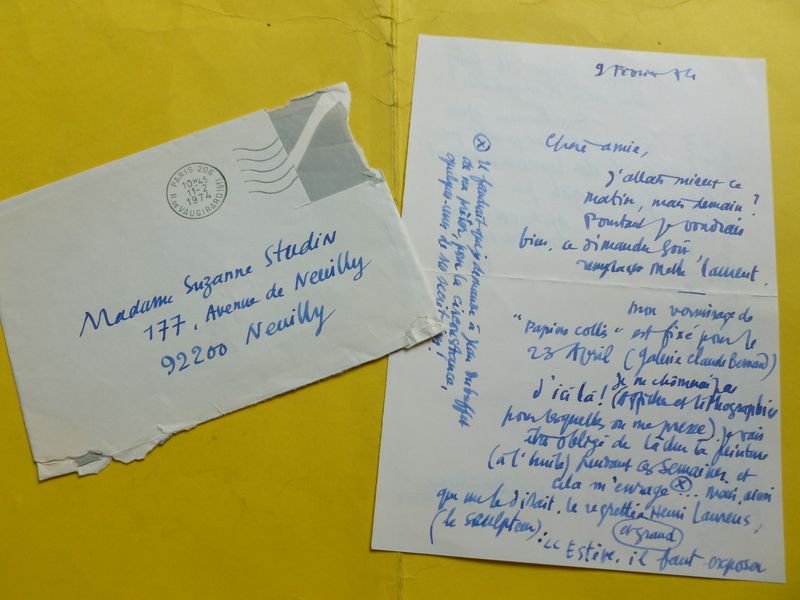 PARIS 206
10H45
11-2
1974
R. DE VAUGIRARD (6E)
Madame Suzanne Studin
177, Avenue de Neuilly
92200 Neuilly
9 Février 74
Chère amie,
J'allais mieux ce
matin, mais demain ?
Pourtant je voudrais
bien, ce dimanche soir,
remplacer Melle Laurent.
mon vernissage de
"Papiers collés" est fixé pour le
23 Avril (galerie Claude Bernard)
d'ici là ! (affiche et lithographies
pour lesquelles on me presse) je vais
être obligé de lâcher la peinture
(à l'huile) pendant ces semaines et
cela m'enrage ⓧ... mais, ainsi
que me le disait, le regretté Henri Laurens,
et grand
(le sculpteur) : "Estève, il faut exposer
ⓧ Il faudrait que je demande à Jean Dubuffet
de me prêter, pour la circonstance,
quelques-uns de